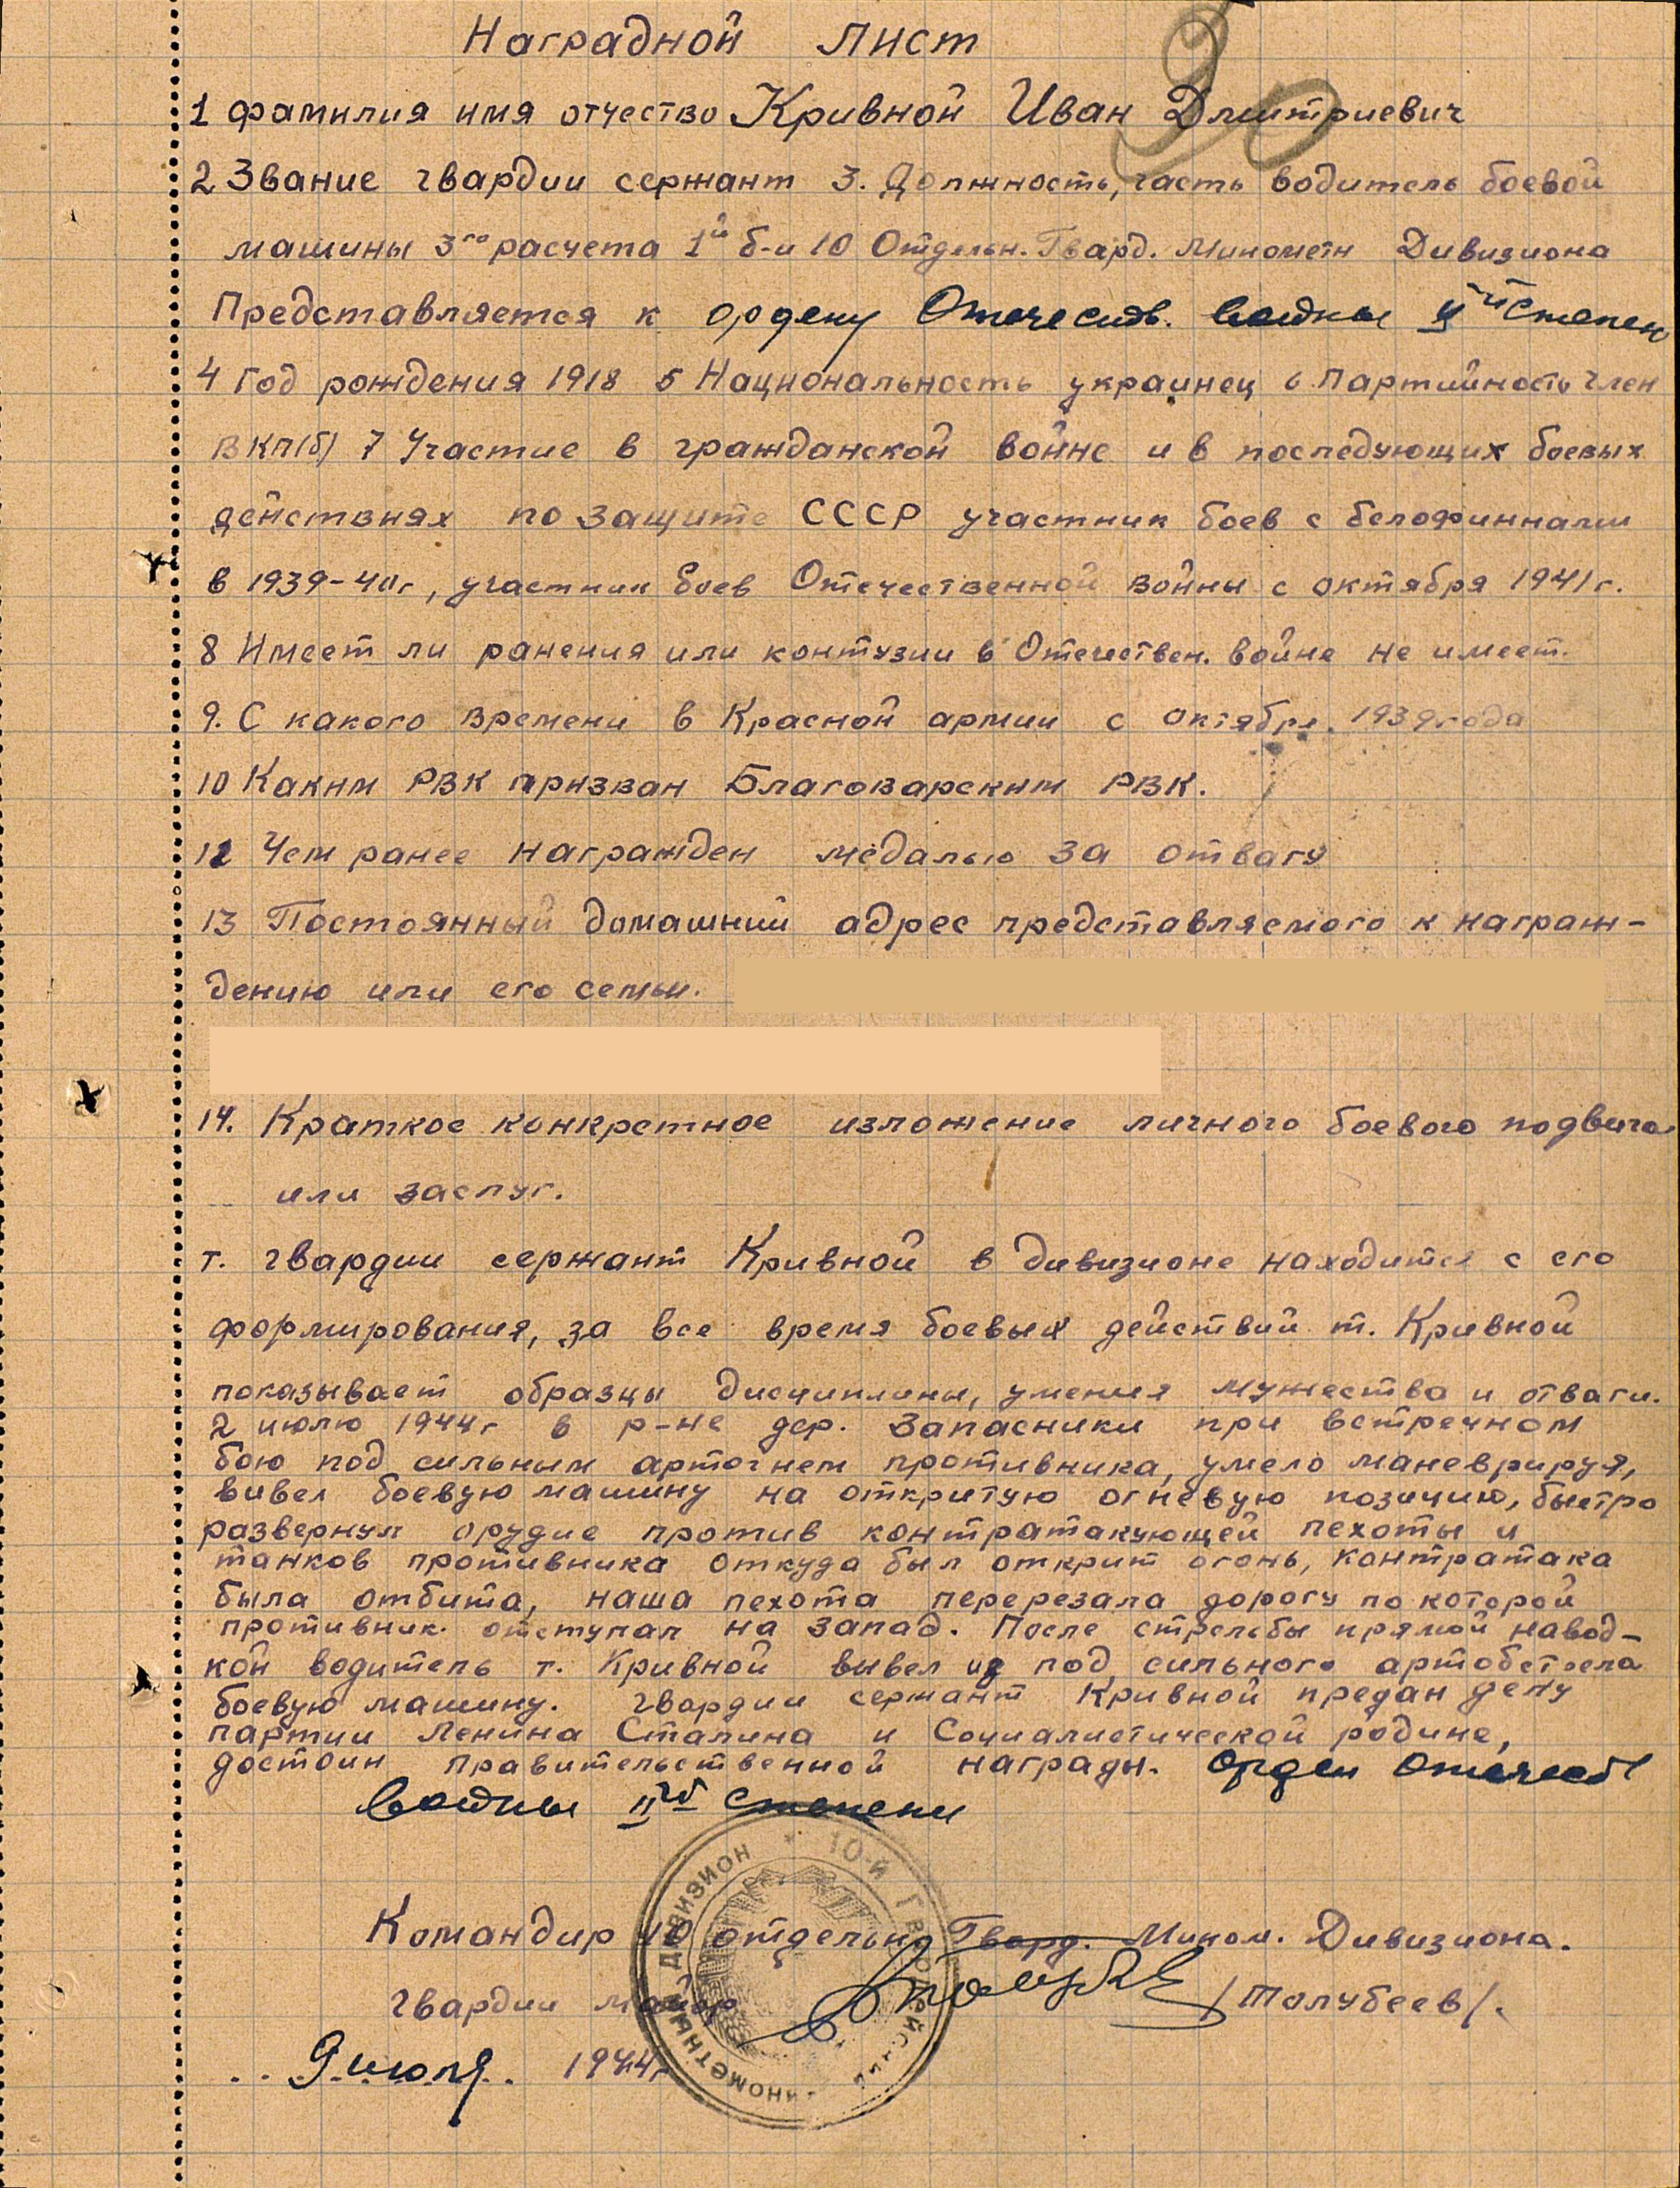 Наградной лист
1 фамилия имя отчество Кривной Иван Дмитриевич
2 Звание гвардии сержант 3. Должность, часть водитель боевой
машины 3го расчета 1й б-и 10 Отдельн. Гвард. Минометн Дивизиона
Представляется к ордену Отечеств. войны II ой степен
4 Год рождения 1918 5 Национальность украинец 6 Партийность член
ВКП(б) 7 Участие в гражданской войне и в последующих боевых
действиях по защите СССР участник боев с белофиннами
в 1939-40г, участник боев Отечественной войны с октября 1941г.
8 Имеет ли ранения или контузии в Отечествен. войне не имеет.
9. С какого времени в Красной армии с октября 1939 года
10 Каким РВК призван Благоварским РВК.
12 Чем ранее награжден медалью за отвагу
13 Постоянный домашний адрес представляемого к награж-
дению или его семьи.
14. Краткое конкретное изложение личного боевого подвига
или заслуг.
т. гвардии сержант Кривной в дивизионе находится с его
формирования, за все время боевых действий т. Кривной
показывает образцы дисциплины, умения мужества и отваги.
2 июлю 1944г в р-не дер. Запасники при встречном
бою под сильным артогнем противника, умело маневрируя,
вивел боевую машину на откритую огневую позицию, быстро
развернул орудие против контратакующей пехоты и
танков противника откуда был открит огонь, контратака
была отбита, наша пехота перерезала дорогу по которой
противник отступал на запад. После стрельбы прямой навод-
кой водитель т. Кривной вывел из под сильного артобстрела
боевую машину. гвардии сержант Кривной предан делу
партии Ленина Сталина и Социалистической родине,
достоин правительственной награды. орден Отечеств
войны II ой степени
Командир 10 отдельн Гвард. Мином. Дивизиона.
гвардии майор /Толубеев/.
9 июля 1944г
10-й Гвардейский минометный дивизион